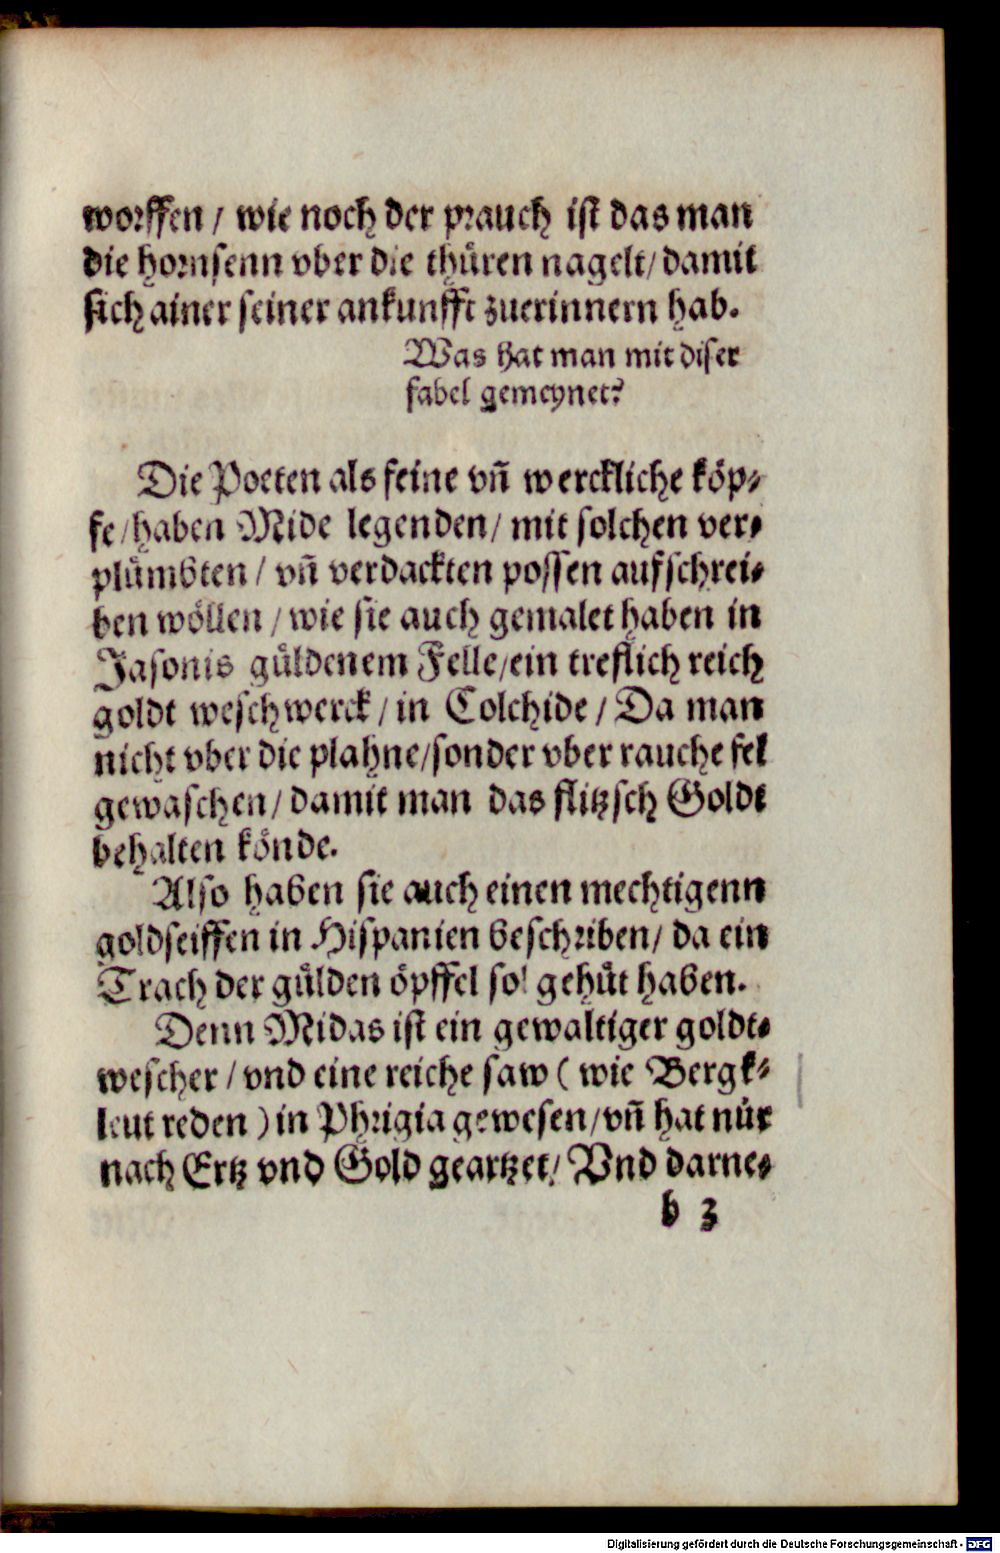 worffen / wie noch der prauch ist das man
die hornsenn vber die thüren nagelt / damit
sich ainer seiner ankunfft zuerinnern hab.
Was hat man mit diser
fabel gemeynet?
Die Poeten als feine vñ werckliche köp⸗
fe / haben Mide legenden / mit solchen ver⸗
plümbten / vñ verdackten possen aufschrei⸗
ben wöllen / wie sie auch gemalet haben in
Jasonis güldenem Felle / ein treflich reich
goldt weschwerck / in Colchide / Da man
nicht vber die plahne / sonder vber rauche fel
gewaschen / damit man das flitzsch Goldt
behalten könde.
Also haben sie auch einen mechtigenn
goldseiffen in Hispanien beschriben / da ein
Trach der gülden öpffel sol gehüt haben.
Denn Midas ist ein gewaltiger goldt⸗
wescher / vnd eine reiche saw ( wie Bergk⸗
leut reden ) in Phrigia gewesen / vñ hat nür
nach Ertz vnd Gold geartzet / Vnd darne⸗
b 3
Digitalisierung gefördert durch die Deutsche Forschungsgemeinschaft - DFG